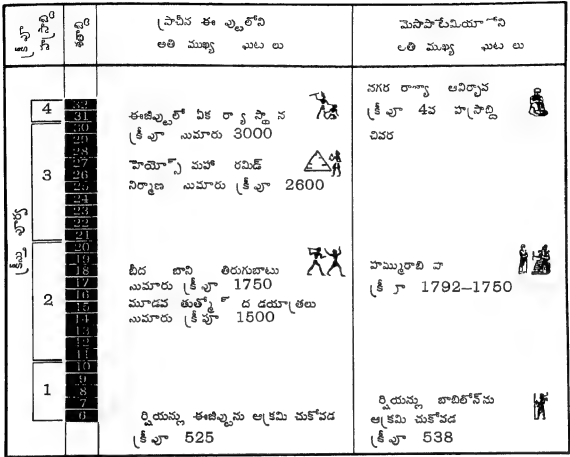 ప్రాచీన ఈ ప్టులోని
అతి ముఖ్య ఘుట లు
మెసాపాటేమియా ని
తి ముఖ్య ఘుట లు
శతాబ్ది
4
32
31
ఈజిప్టులో ఏక రా్య స్థా న
క్రీ పూ సుమారు 3000
నగర రాజ్యా ఆవిర్భావ
క్రీ పూ 4వ హస్రాబ్ది
చివర
3
30
29
28
27
26
25
24
23
22
21
మహా రమిడ్
నిర్మాణ సుమారు క్రీ పూ 2600
2
20
19
18
17
16
15
14
13
12
11
బీద బాని తిరుగుబాటు
సుమారు క్రీ పూ 1750
మూడవ ద డయాత్రలు
సుమారు క్రీ పూ 1500
హమ్మురాబి పా
క్రీ 1792–1750
1
10
9
8
7
6
ర్షియన్లు ఈజిప్టును ఆక్రమి చుకోవడ
క్రీ పూ 525
ర్షియన్లు బాబిలోన్‌ను
ఆక్రమి చుకోవడ
క్రీ పూ 538